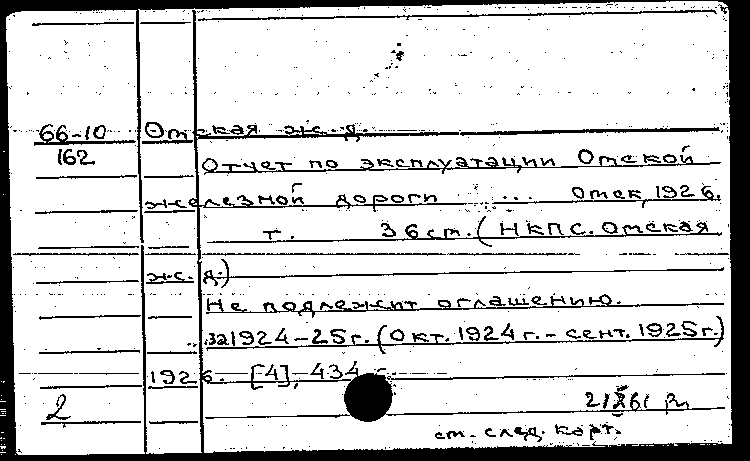 66-10 Омская ж.д.
162 Отчет по эксплуатации Омской
железной дороги ... Омск, 1926.
т. 36 см. (НКПС. Омская
ж.д.)
Не подлежит оглашению.
за 1924-25 г. (Окт. 1924 г. - сент. 1925 г.)
1926. [4], 434 с.
2
см. след. карт.